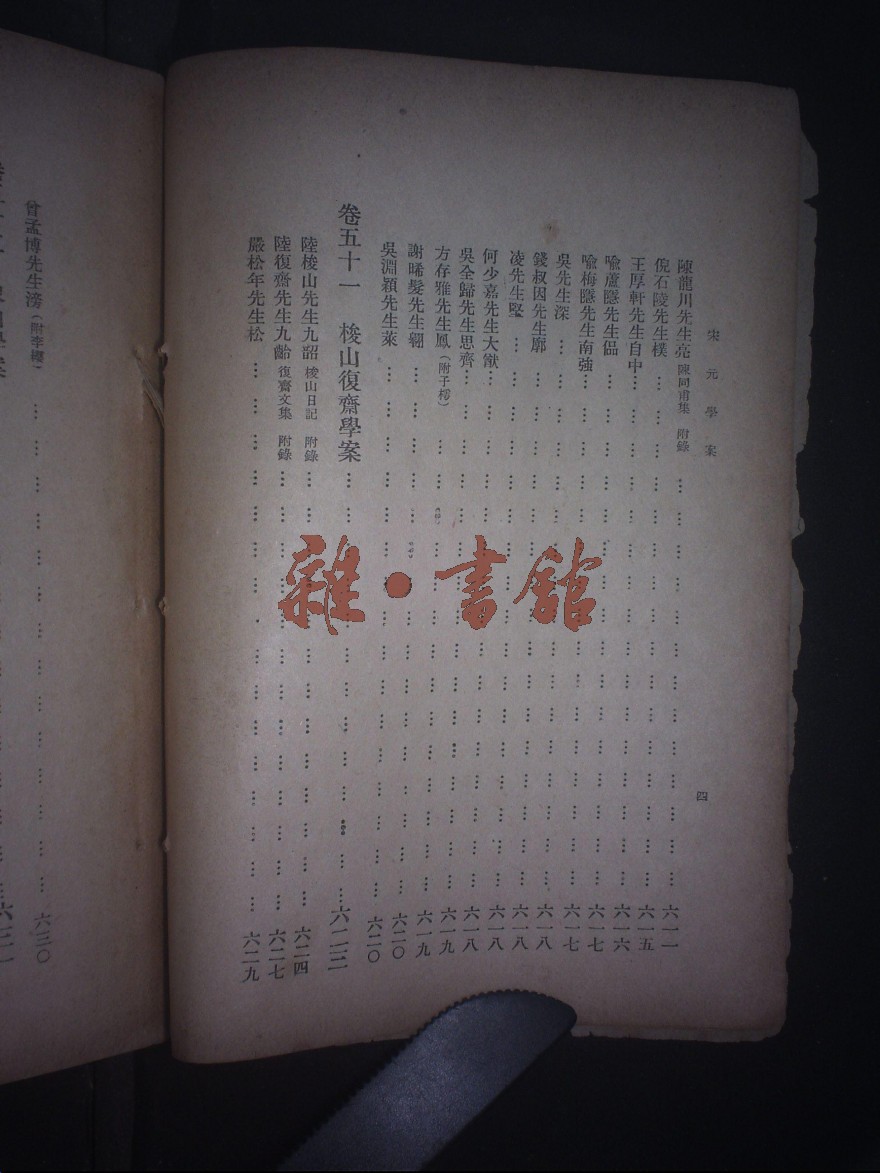 宋元學案
四
陳龍川先生亮 陳同甫集 附錄……六一一
倪石陵先生樸……六一五
王厚軒先生自中……六一六
喻蘆隱先生偘……六一七
喻梅隱先生南強……六一七
吳先生深……六一八
錢叔因先生廓……六一八
凌先生堅……六一八
何少嘉先生大猷……六一八
吳全歸先生思齊……六一九
方存雅先生鳳(附子樗)……六一九
謝晞髮先生翱……六二〇
吳淵穎先生萊……六二〇
卷五十一 梭山復齋學案……六二三
陸梭山先生九韶 梭山日記 附錄……六二四
陸復齋先生九齡 復齋文集 附錄……六二七
嚴松年先生松……六二九
曾孟博先生滂(附李纓)……六三〇
雜·書館